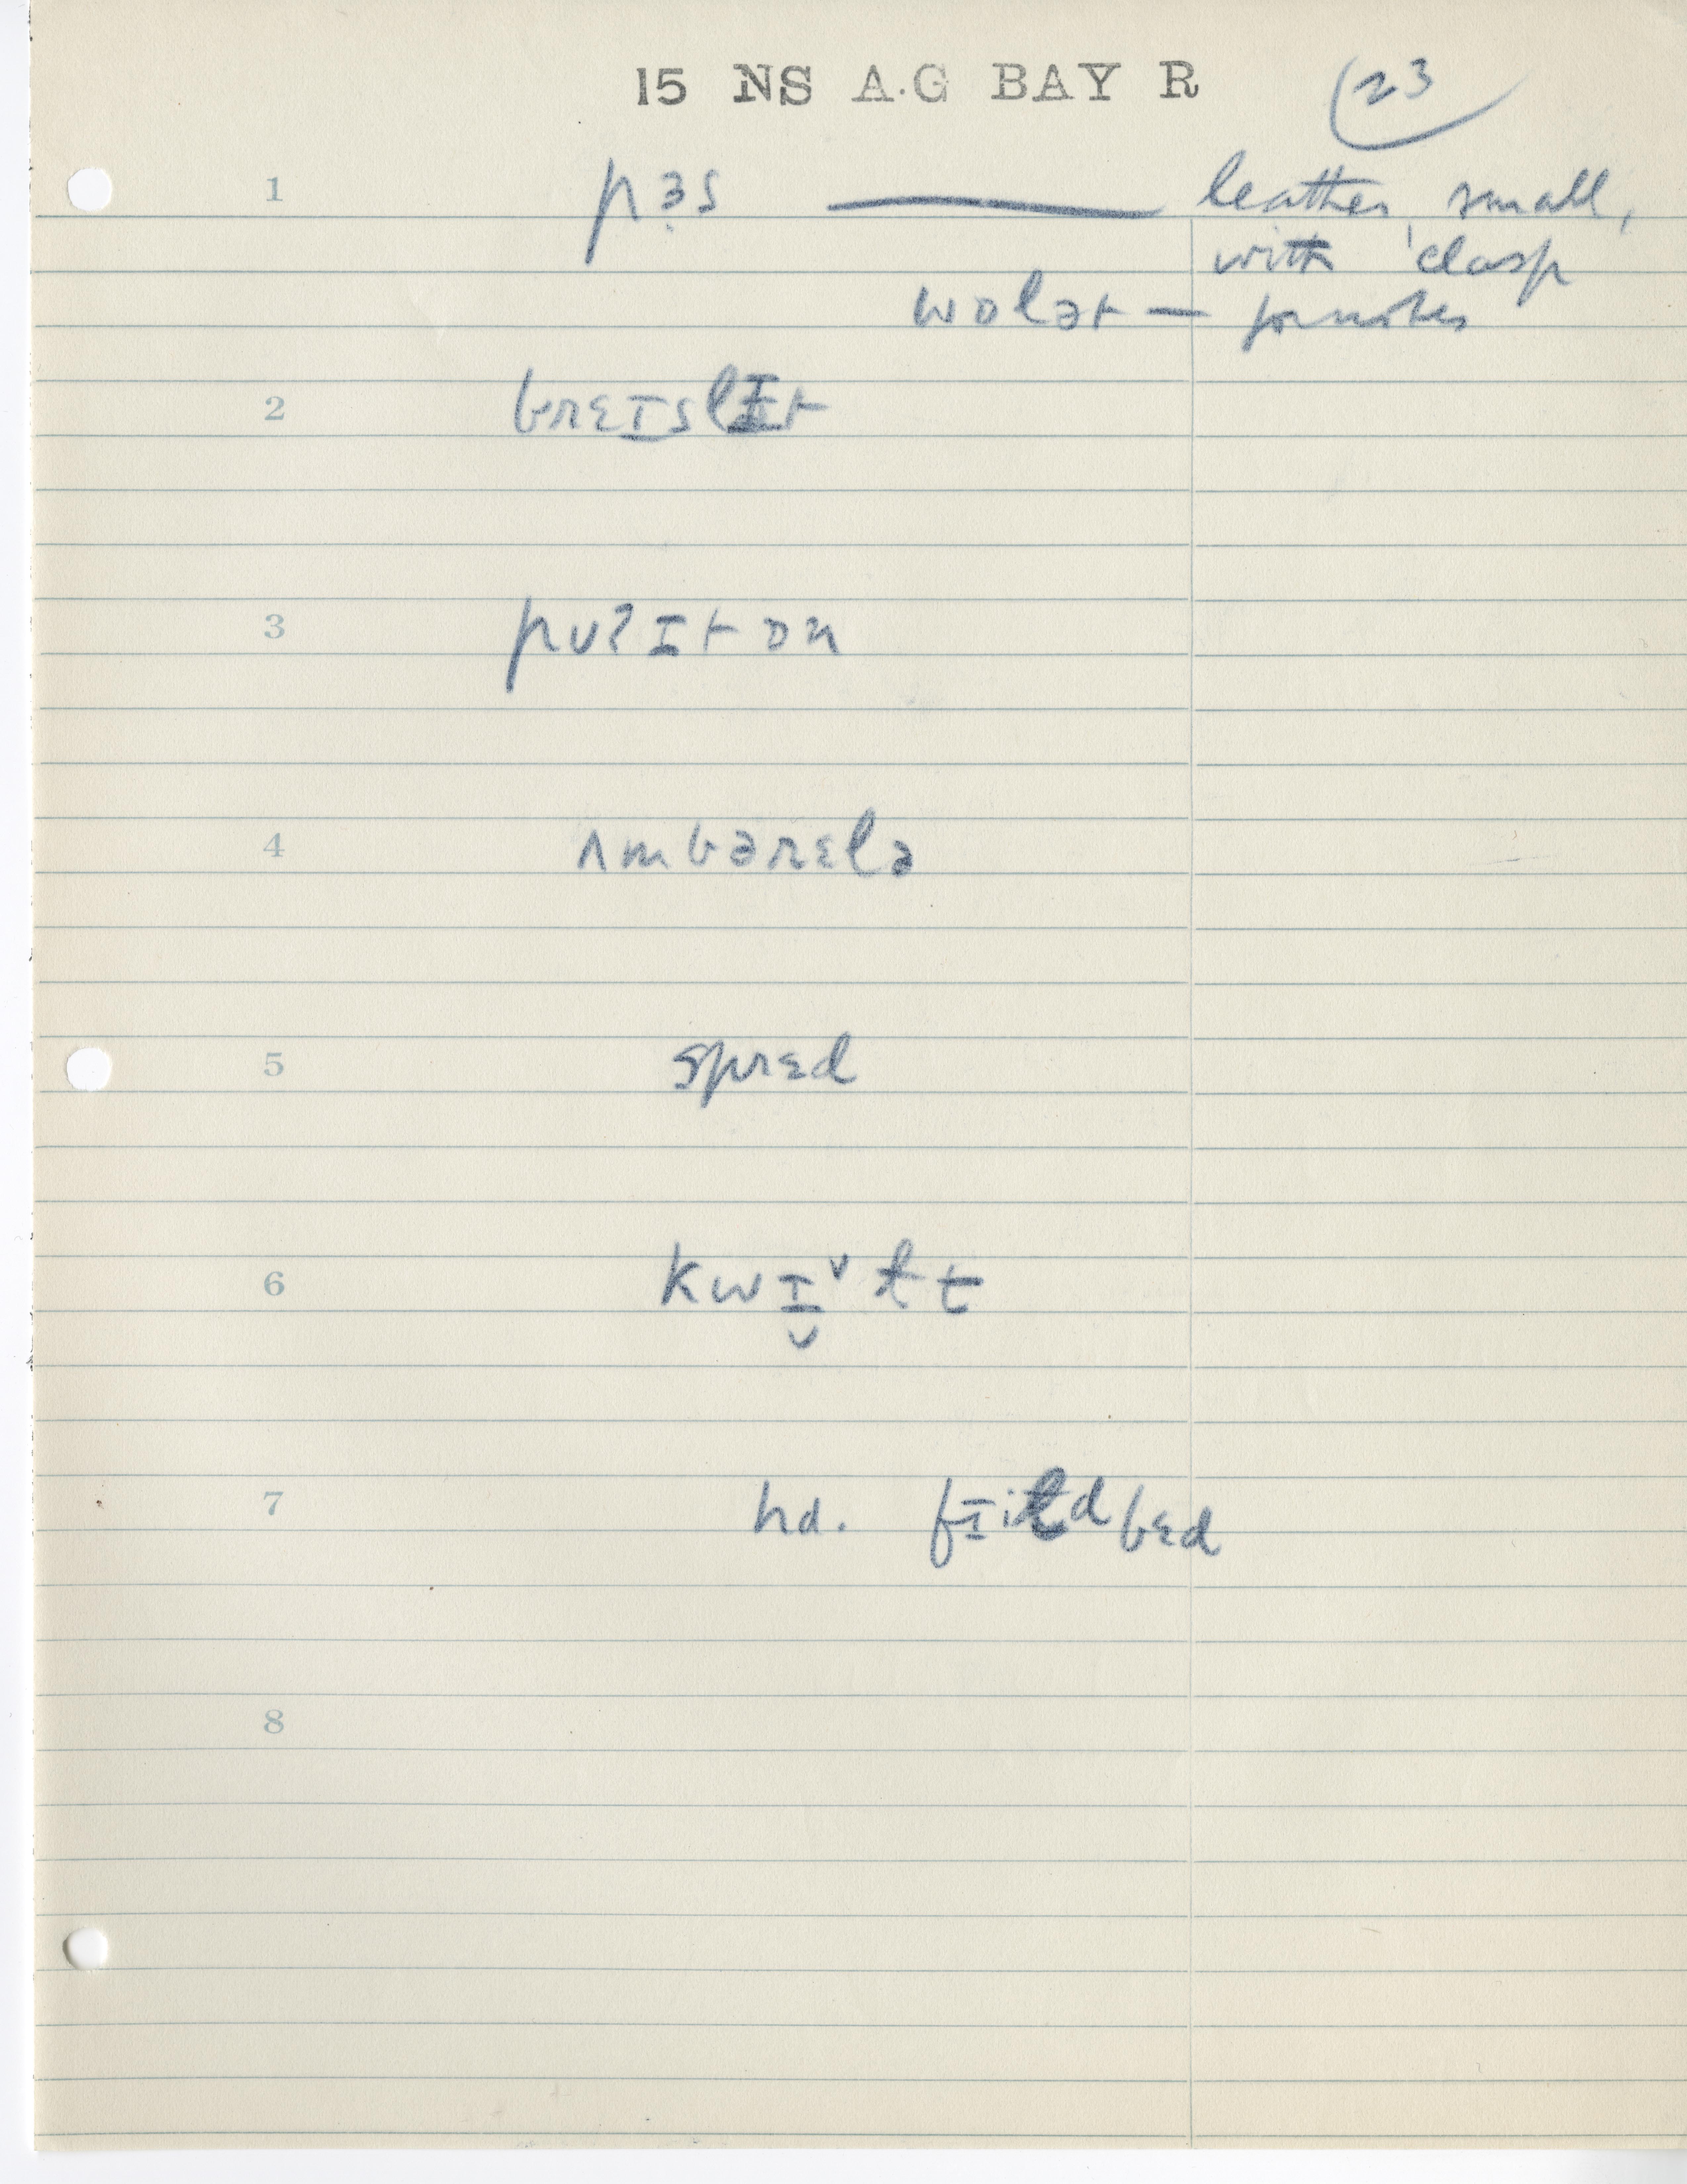 15 NS A.G BAY R 23
1 pɜs — leather, small,
with clasp
wɒlət — for notes
2 brɛɪslɪt
3 pʊʔ ɪt ɒn
4 ʌmbərɛlə
5 sprɛd
6 kwɪ̬ˇɫt
7 hd. fɪiɫd bɛd
8